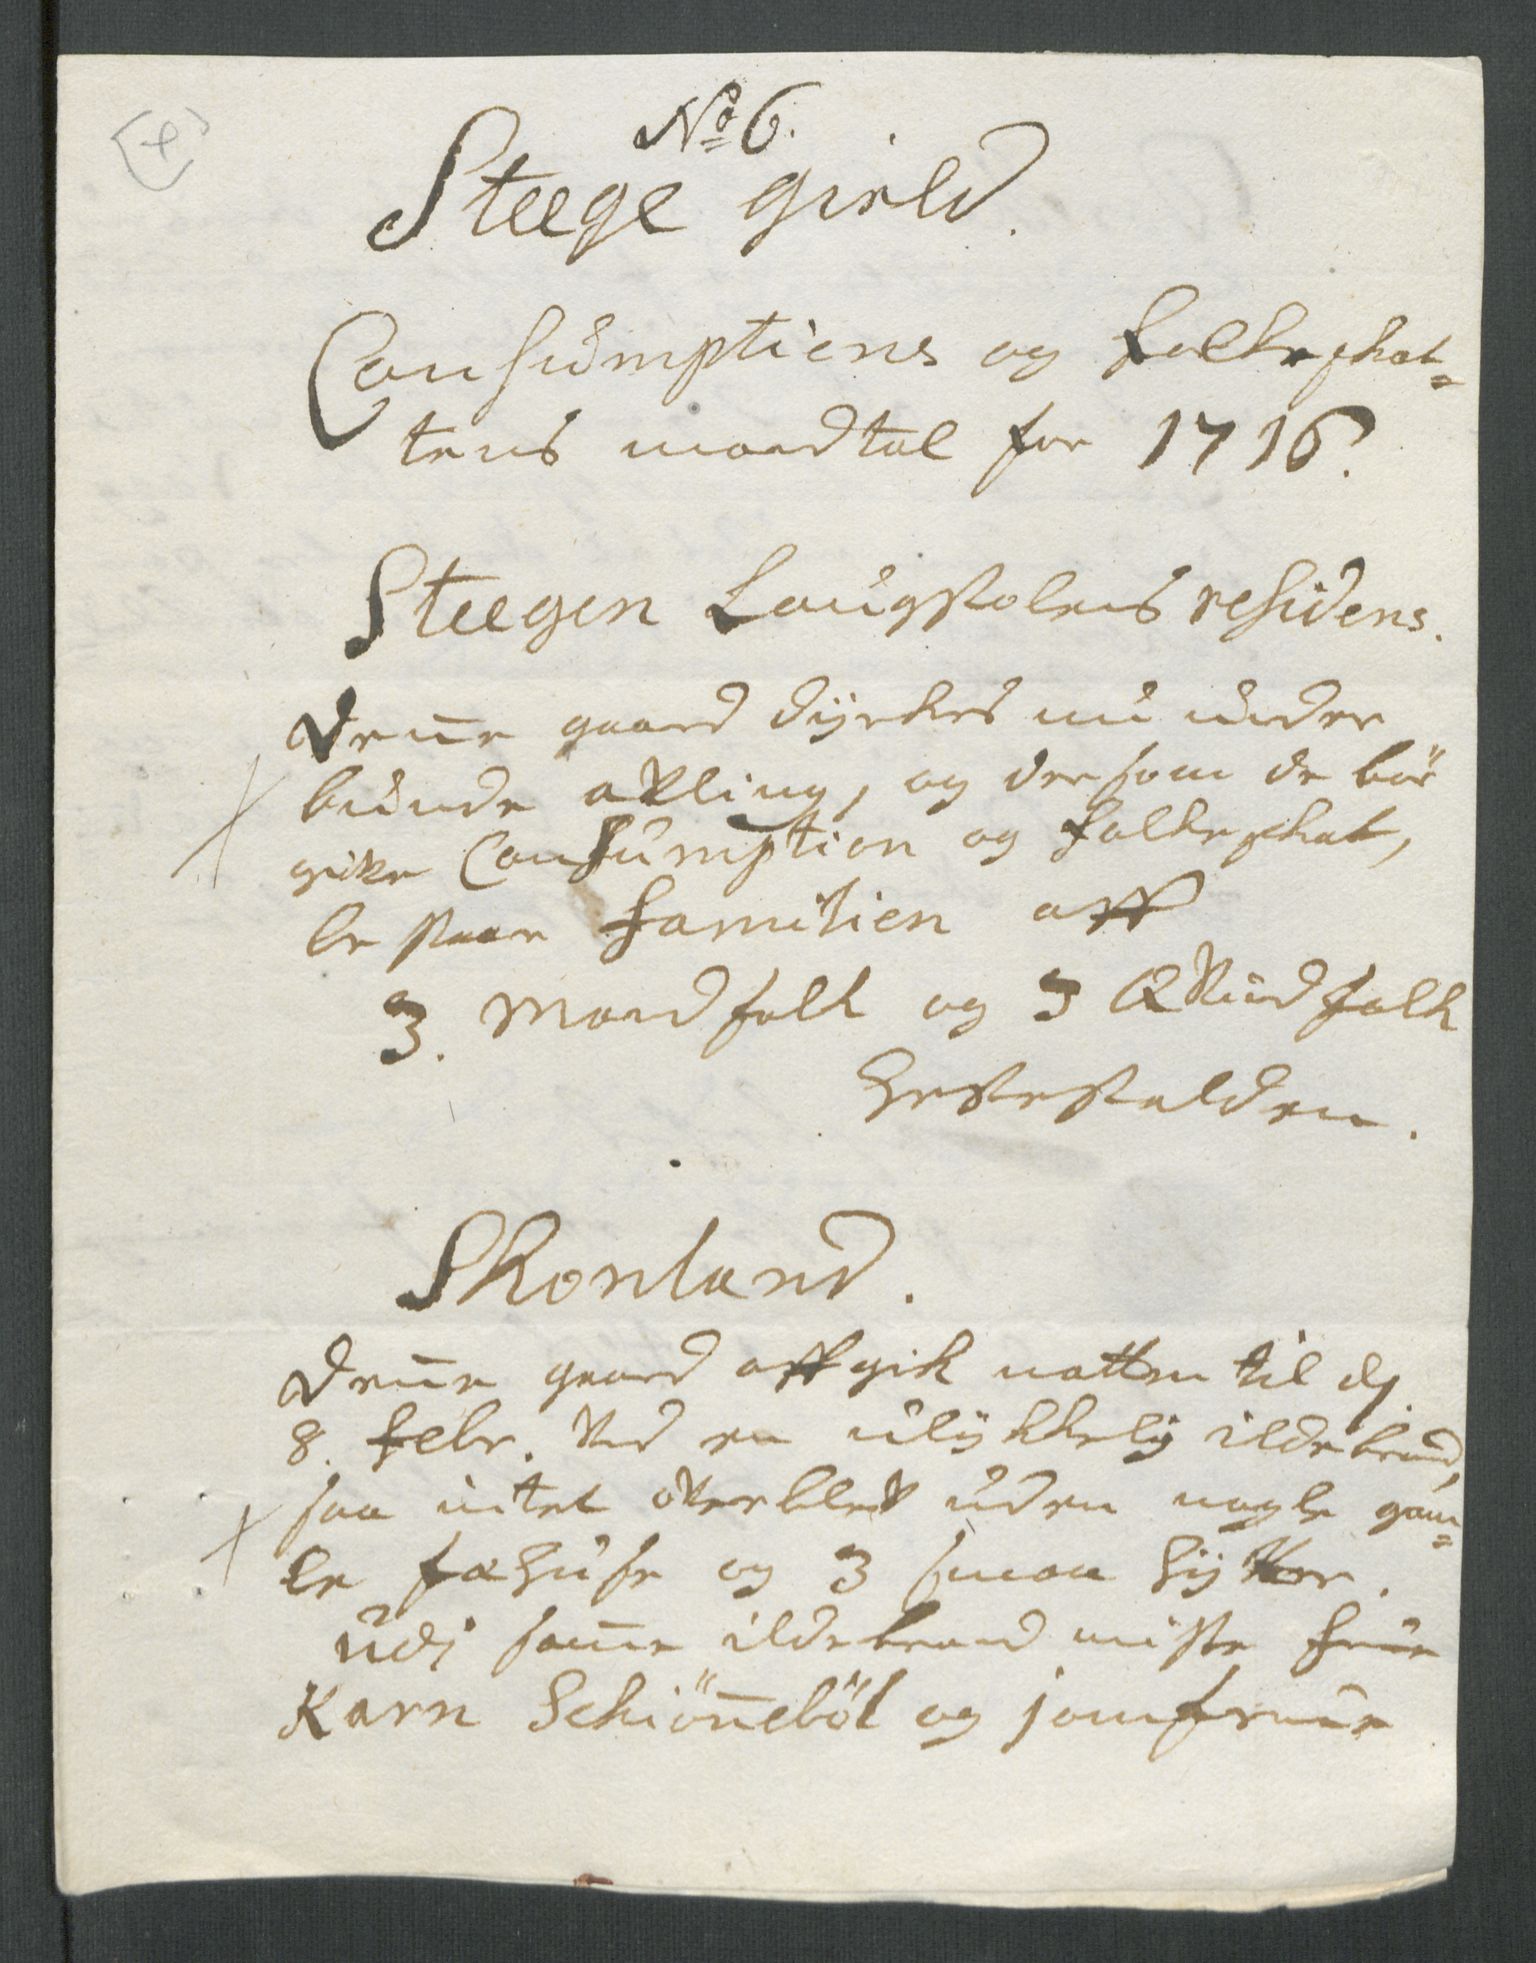 No 6.
Steege gield.
Consumptiens og folkeskat=
tens mandtal for 1716.
Steegen Laugstolens residens.
Denne gaard dÿrkes nu under
bunde avling, og dersom de bör
give Consumption og folkeskat,
bestaar familien aff
3. Mandfolk og 3 Qvindfolk
Hestestalden.
Skonland.
Denne gaard affgik natten til dj
8. febr. ved en ulÿkkelig ildebrand,
saa intet overblev uden nogle gam=
le fæhuse og 3 smaa hÿtter.
udj samme ildebrand miste frue
Karn Schiönneböl og jomfrue